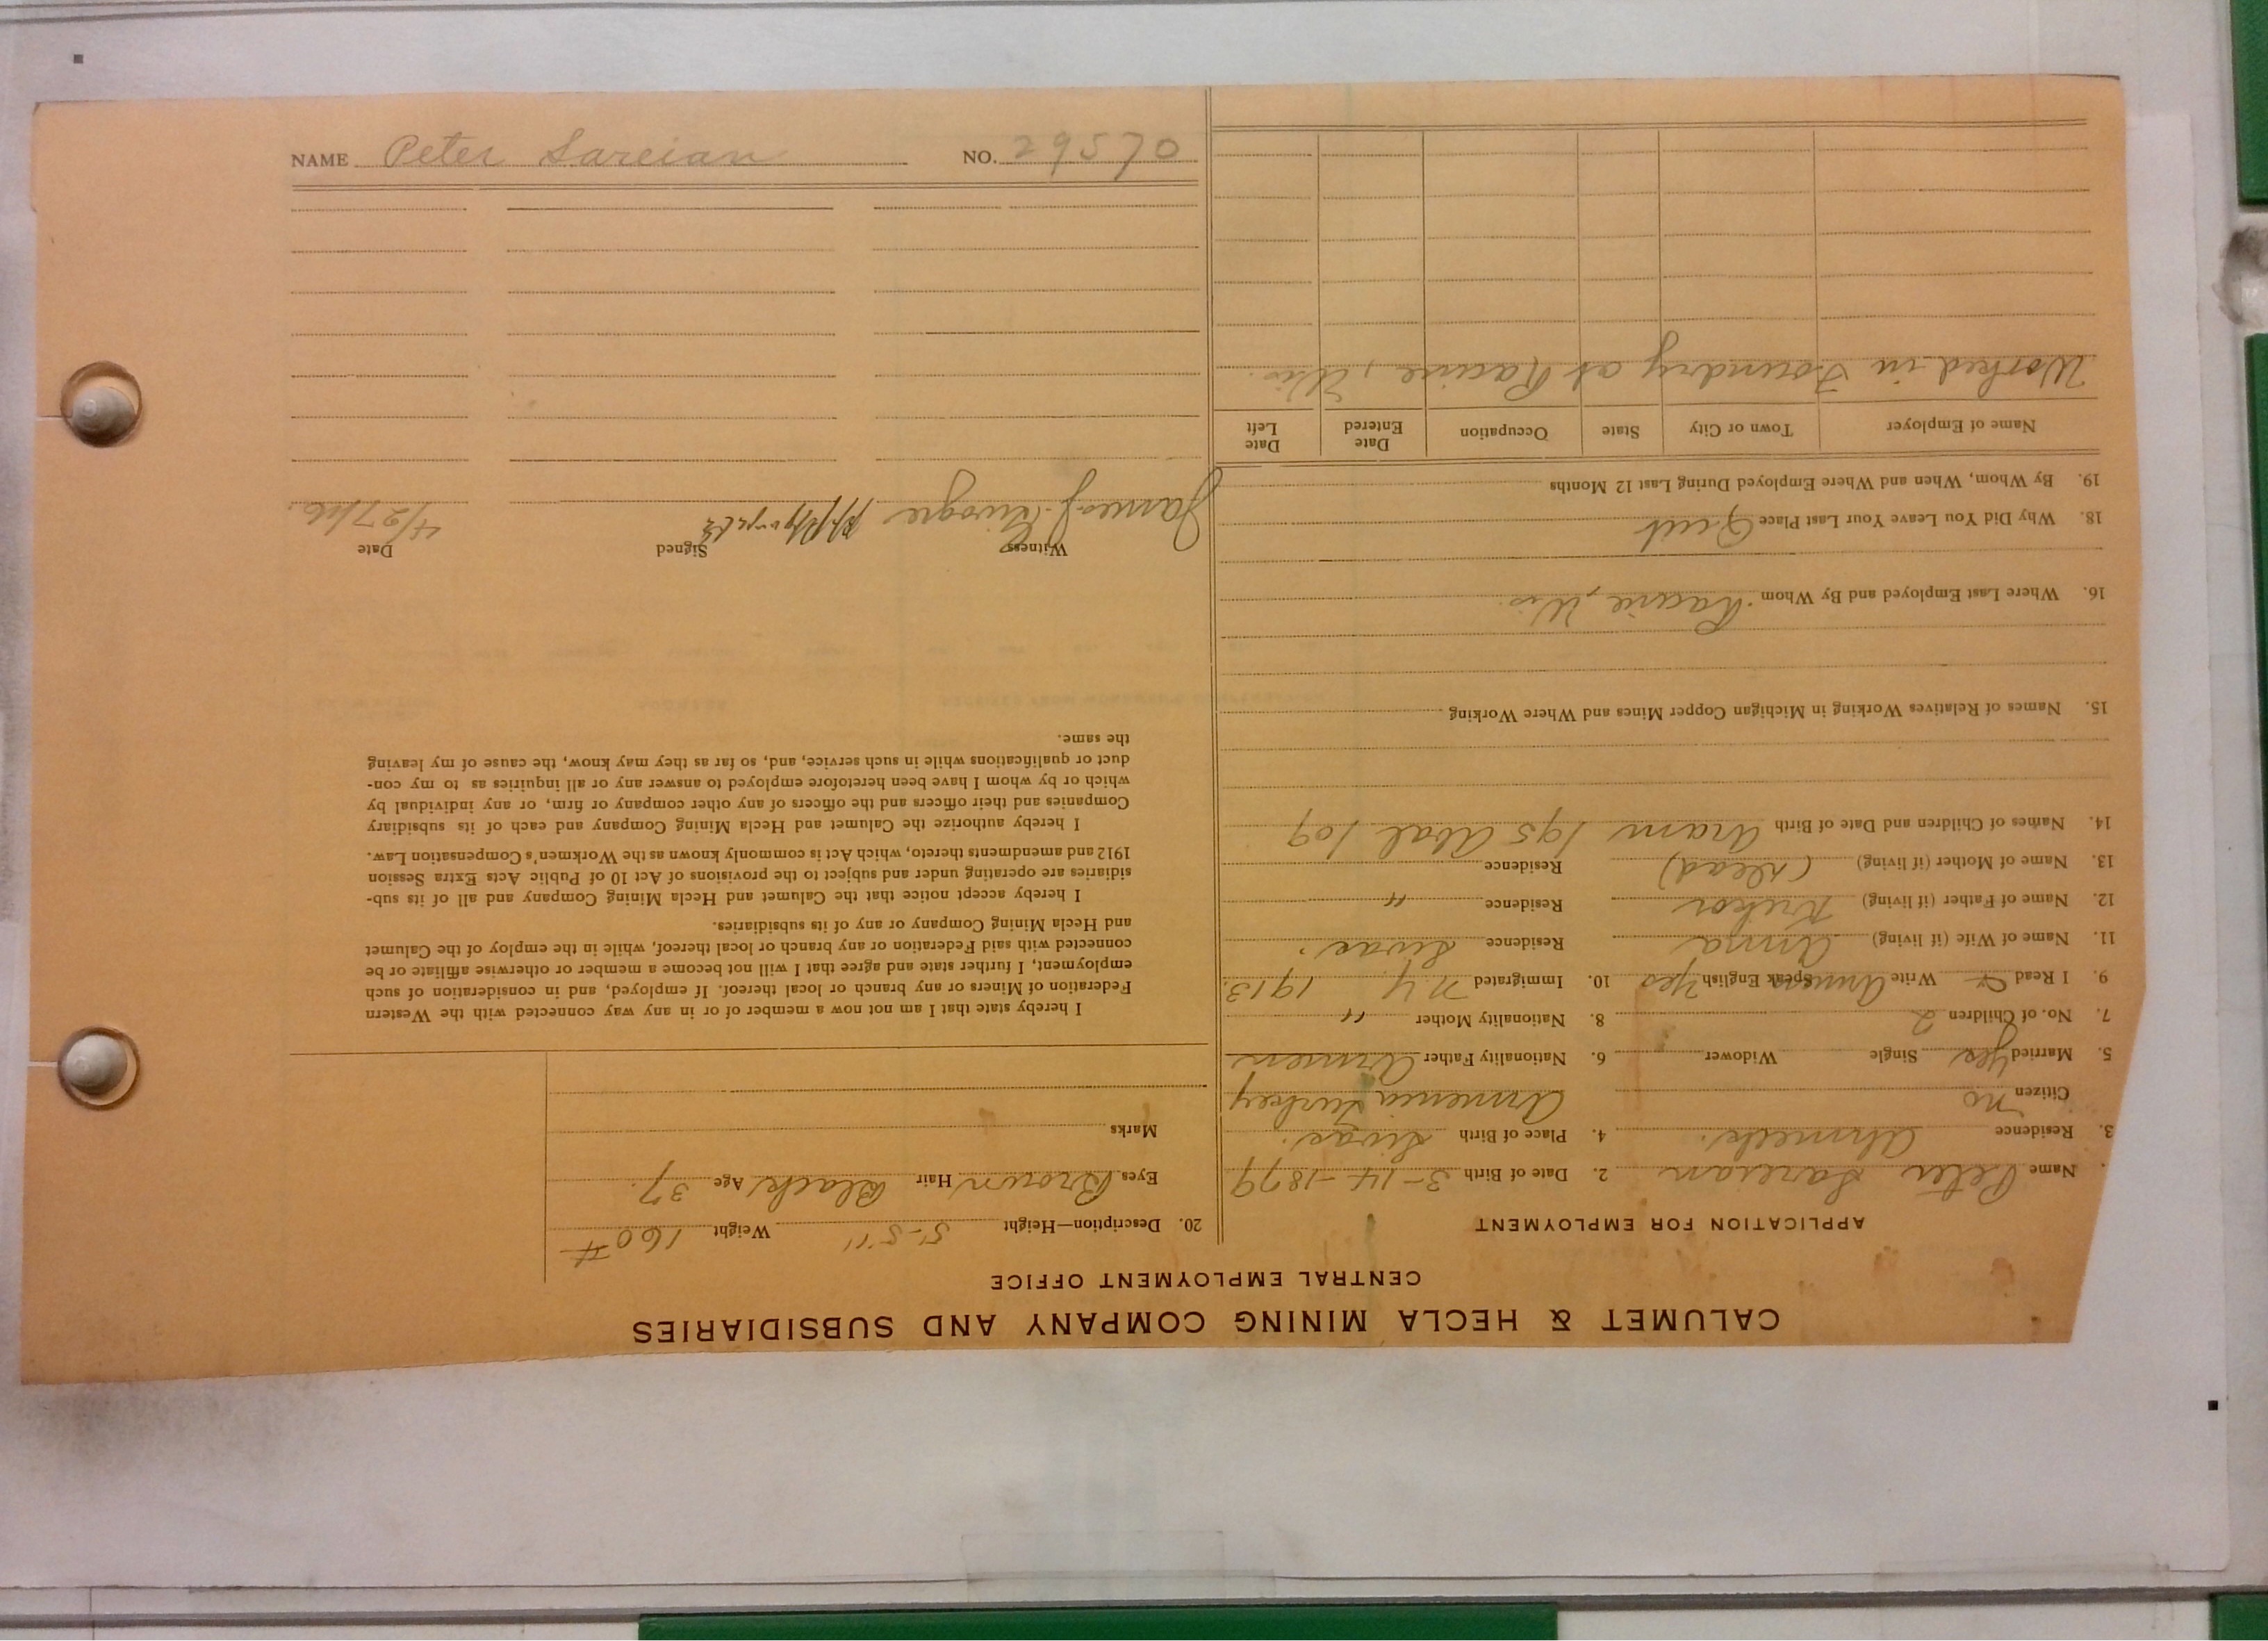 NAME Peter Sareian NO. 29570
CALUMET & HECLA MINING COMPANY AND SUBSIDIARIES
CENTRAL EMPLOYMENT OFFICE
APPLICATION FOR EMPLOYMENT
Name Peter Sareian 2. Date of Birth 3-14-1879
3. Residence Ahmeek. 4. Place of Birth Sivas.
Citizen no Armenia Turkey
5. Married yes Single Widower 6. Nationality Father Armen
7. No. of Children 2 8. Nationality Mother "
9. I Read & Write Armen Speak English yes 10. Immigrated N.Y. 1913.
11. Name of Wife (if living) Anna Residence Sivas.
12. Name of Father (if living) Krekor Residence "
13. Name of Mother (if living) (dead) Residence
14. Names of Children and Date of Birth Aram 195 109
15. Names of Relatives Working in Michigan Copper Mines and Where Working
16. Where Last Employed and By Whom Racine, Wis.
18. Why Did You Leave Your Last Place Quit
19. By Whom, When and Where Employed During Last 12 Months
Name of Employer Town or City State Occupation Date Entered Date Left
Worked in Foundry at Racine, Wis.
20. Description—Height 5'-5" Weight 160#
Eyes Brown Hair Black Age 37.
Marks
I hereby state that I am not now a member of or in any way connected with the Western
Federation of Miners or any branch or local thereof. If employed, and in consideration of such
employment, I further state and agree that I will not become a member or otherwise affiliate or be
connected with said Federation or any branch or local thereof, while in the employ of the Calumet
and Hecla Mining Company or any of its subsidiaries.
I hereby accept notice that the Calumet and Hecla Mining Company and all of its sub-
sidiaries are operating under and subject to the provisions of Act 10 of Public Acts Extra Session
1912 and amendments thereto, which Act is commonly known as the Workmen's Compensation Law.
I hereby authorize the Calumet and Hecla Mining Company and each of its subsidiary
Companies and their officers and the officers of any other company or firm, or any individual by
which or by whom I have been heretofore employed to answer any or all inquiries as to my con-
duct or qualifications while in such service, and, so far as they may know, the cause of my leaving
the same.
Witness Signed Date
James J. 4/27/16.